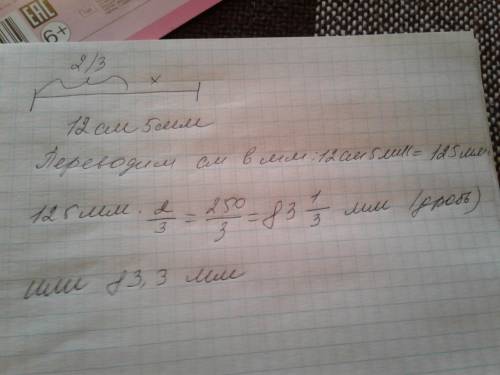 EAC
6+
2/3
x
12см 5мм
Переводим см в мм: 12см 5мм = 125мм
125мм · 2/3 = 250/3 = 83 1/3 мм (дробь)
или 83,3 мм